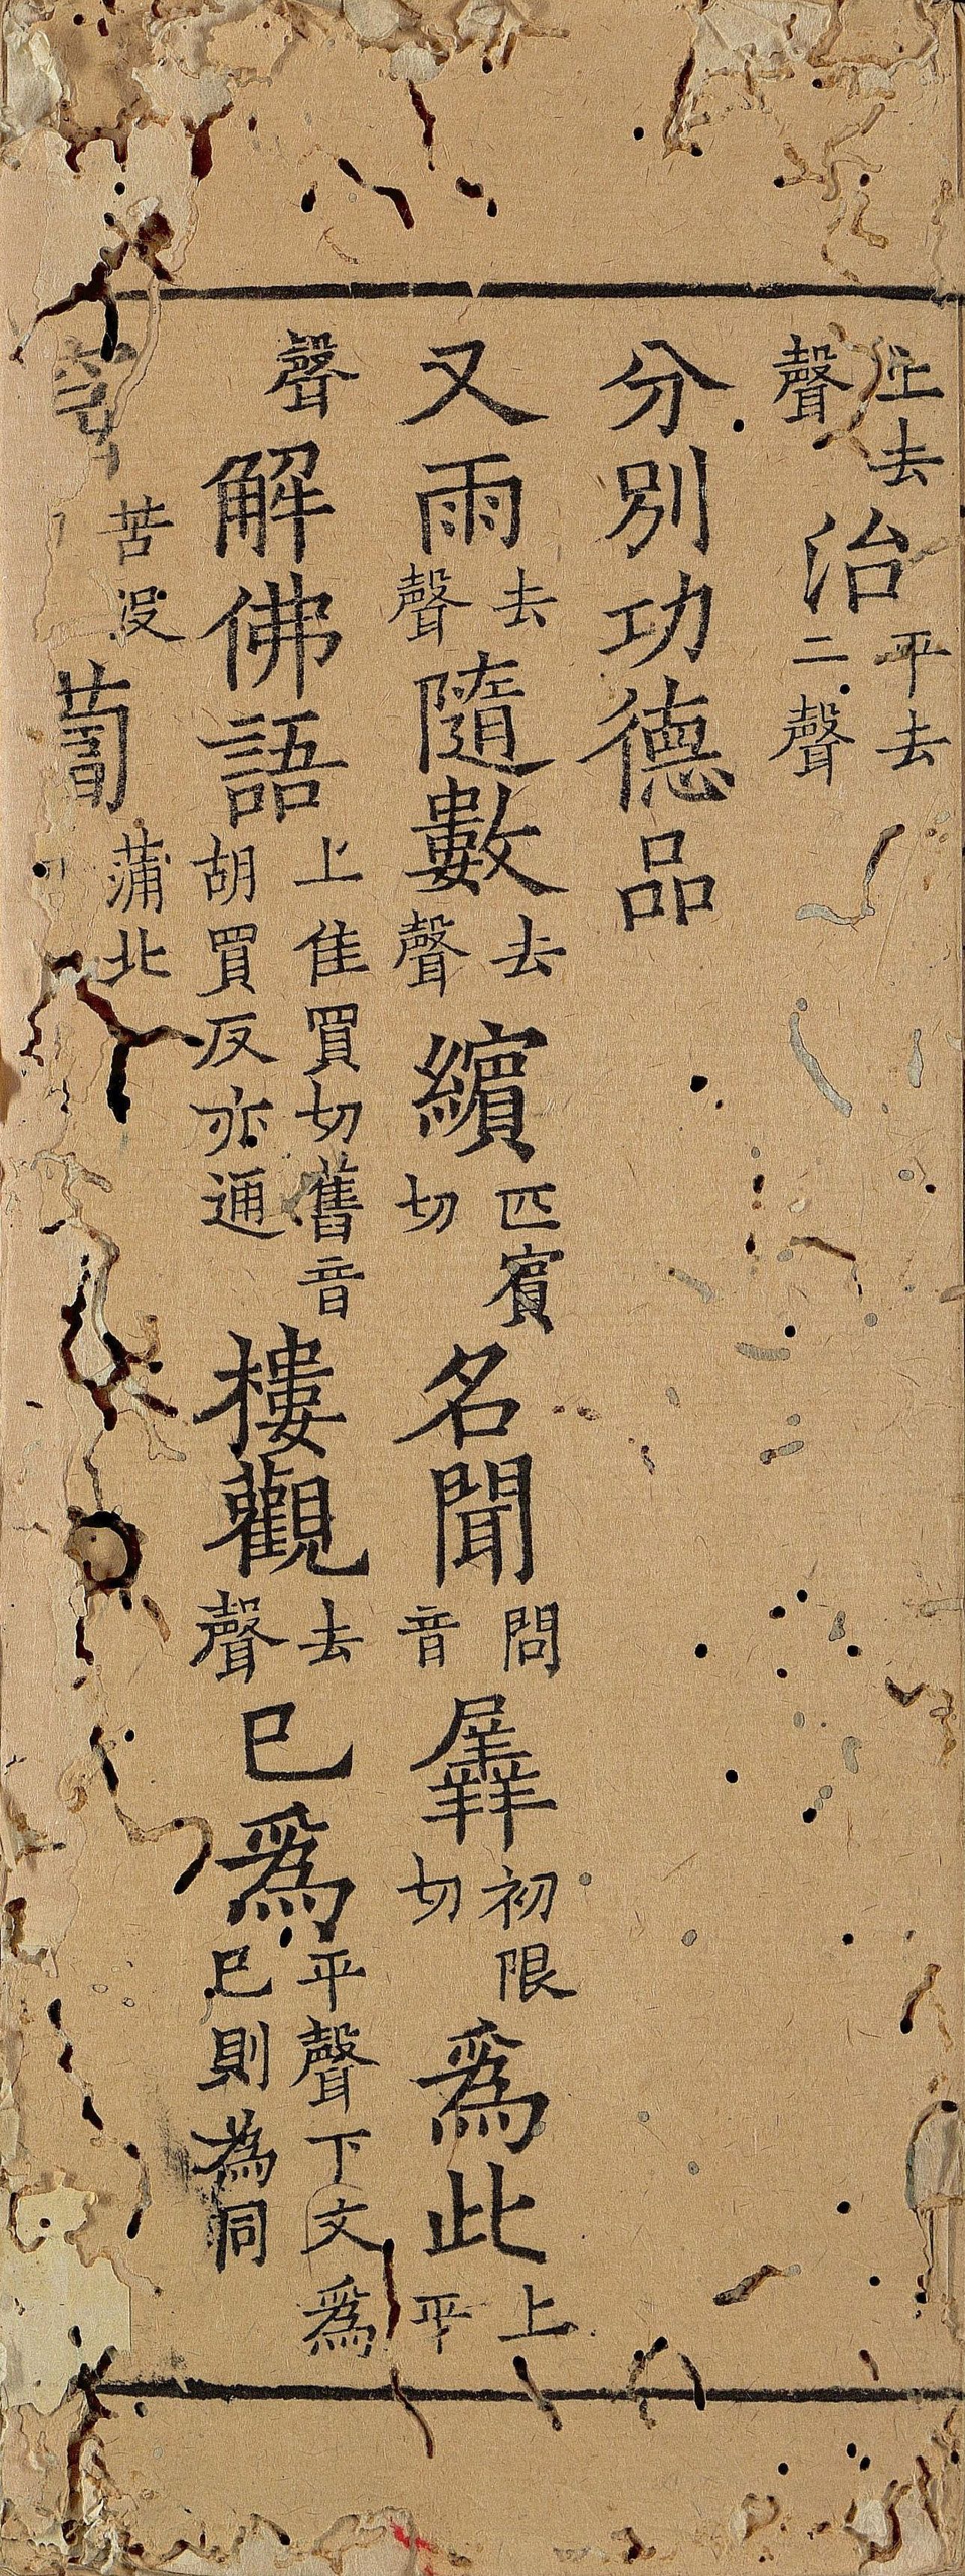 上去聲治平去二聲
分別功德品
又雨去聲隨數去聲繽匹賓切名聞問音羼初限切爲此上平
聲解佛語上佳買切舊音胡買反亦通樓觀去聲已爲平聲下文爲已則為同
苦没蔔蒲北